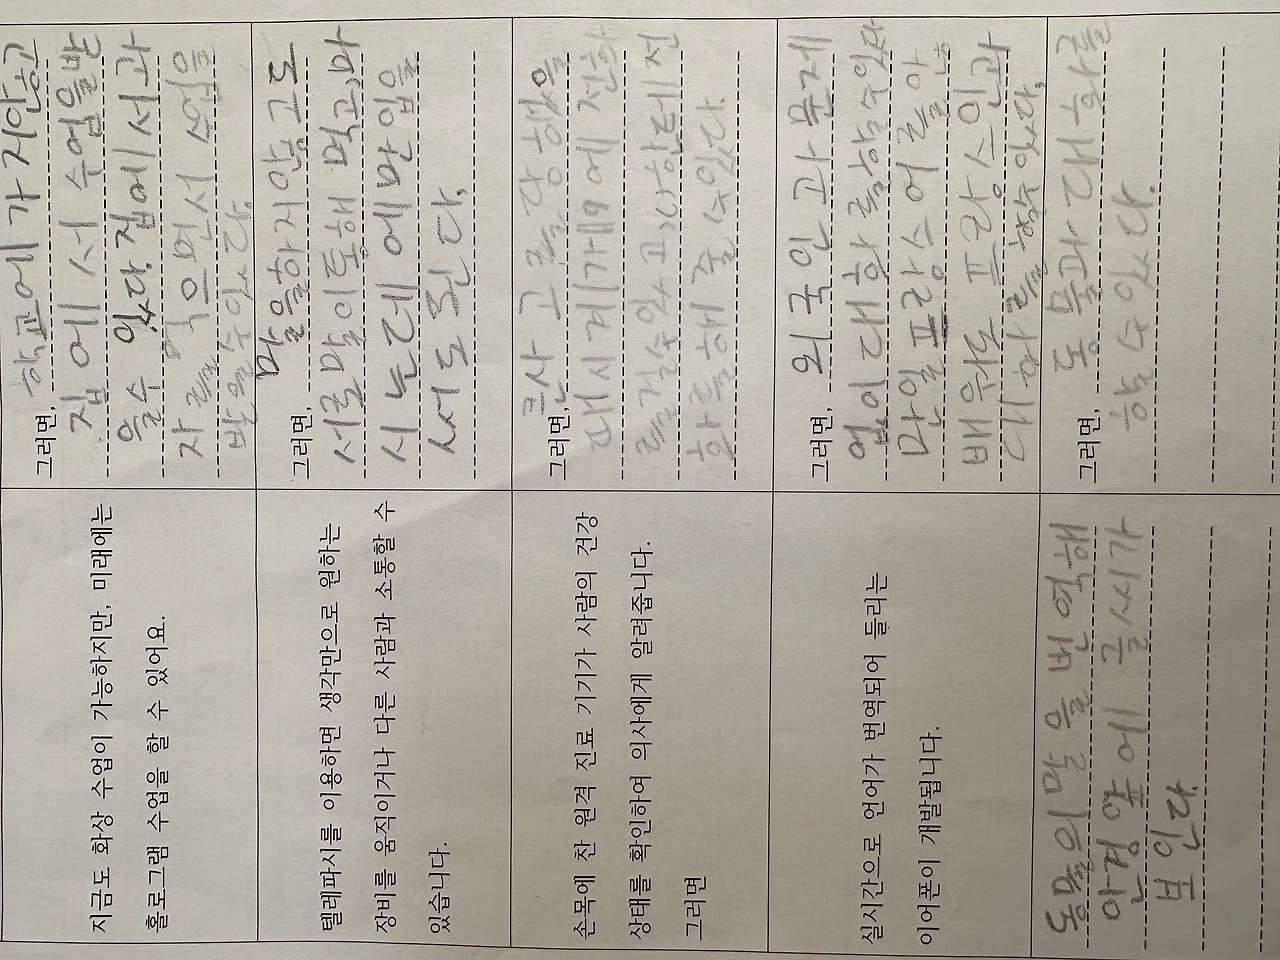 지금도 화상 수업이 가능하지만, 미래에는
홀로그램 수업을 할 수 있어요.
그러면, 학교에 가지않고
집에서 수업을받
을수 있다. 집에서 과
자를 먹으면서 수업을
받을수있다.
텔레파시를 이용하면 생각만으로 원하는
장비를 움직이거나 다른 사람과 소통할 수
있습니다.
그러면, 말을하지않고도
서로말이통해 먹고,마
시는데에만입을
써도 된다.
손목에 찬 원격 진료 기기가 사람의 건강
상태를 확인하여 의사에게 알려줍니다.
그러면
그러면, 큰사고를당했을
때시계가 전화
를걸수있고,나한테전
화를해줄수있다
실시간으로 언어가 번역되어 들리는
이어폰이 개발됩니다.
그러면, 외국인과문제
없이대화를할수있다
만일프랑스어를안
배워도 프랑스인과
대화를할수있다.
동물의말을번역해
안경앞에글씨가
보인다.
그러면, 동물과대화를
할수있다.